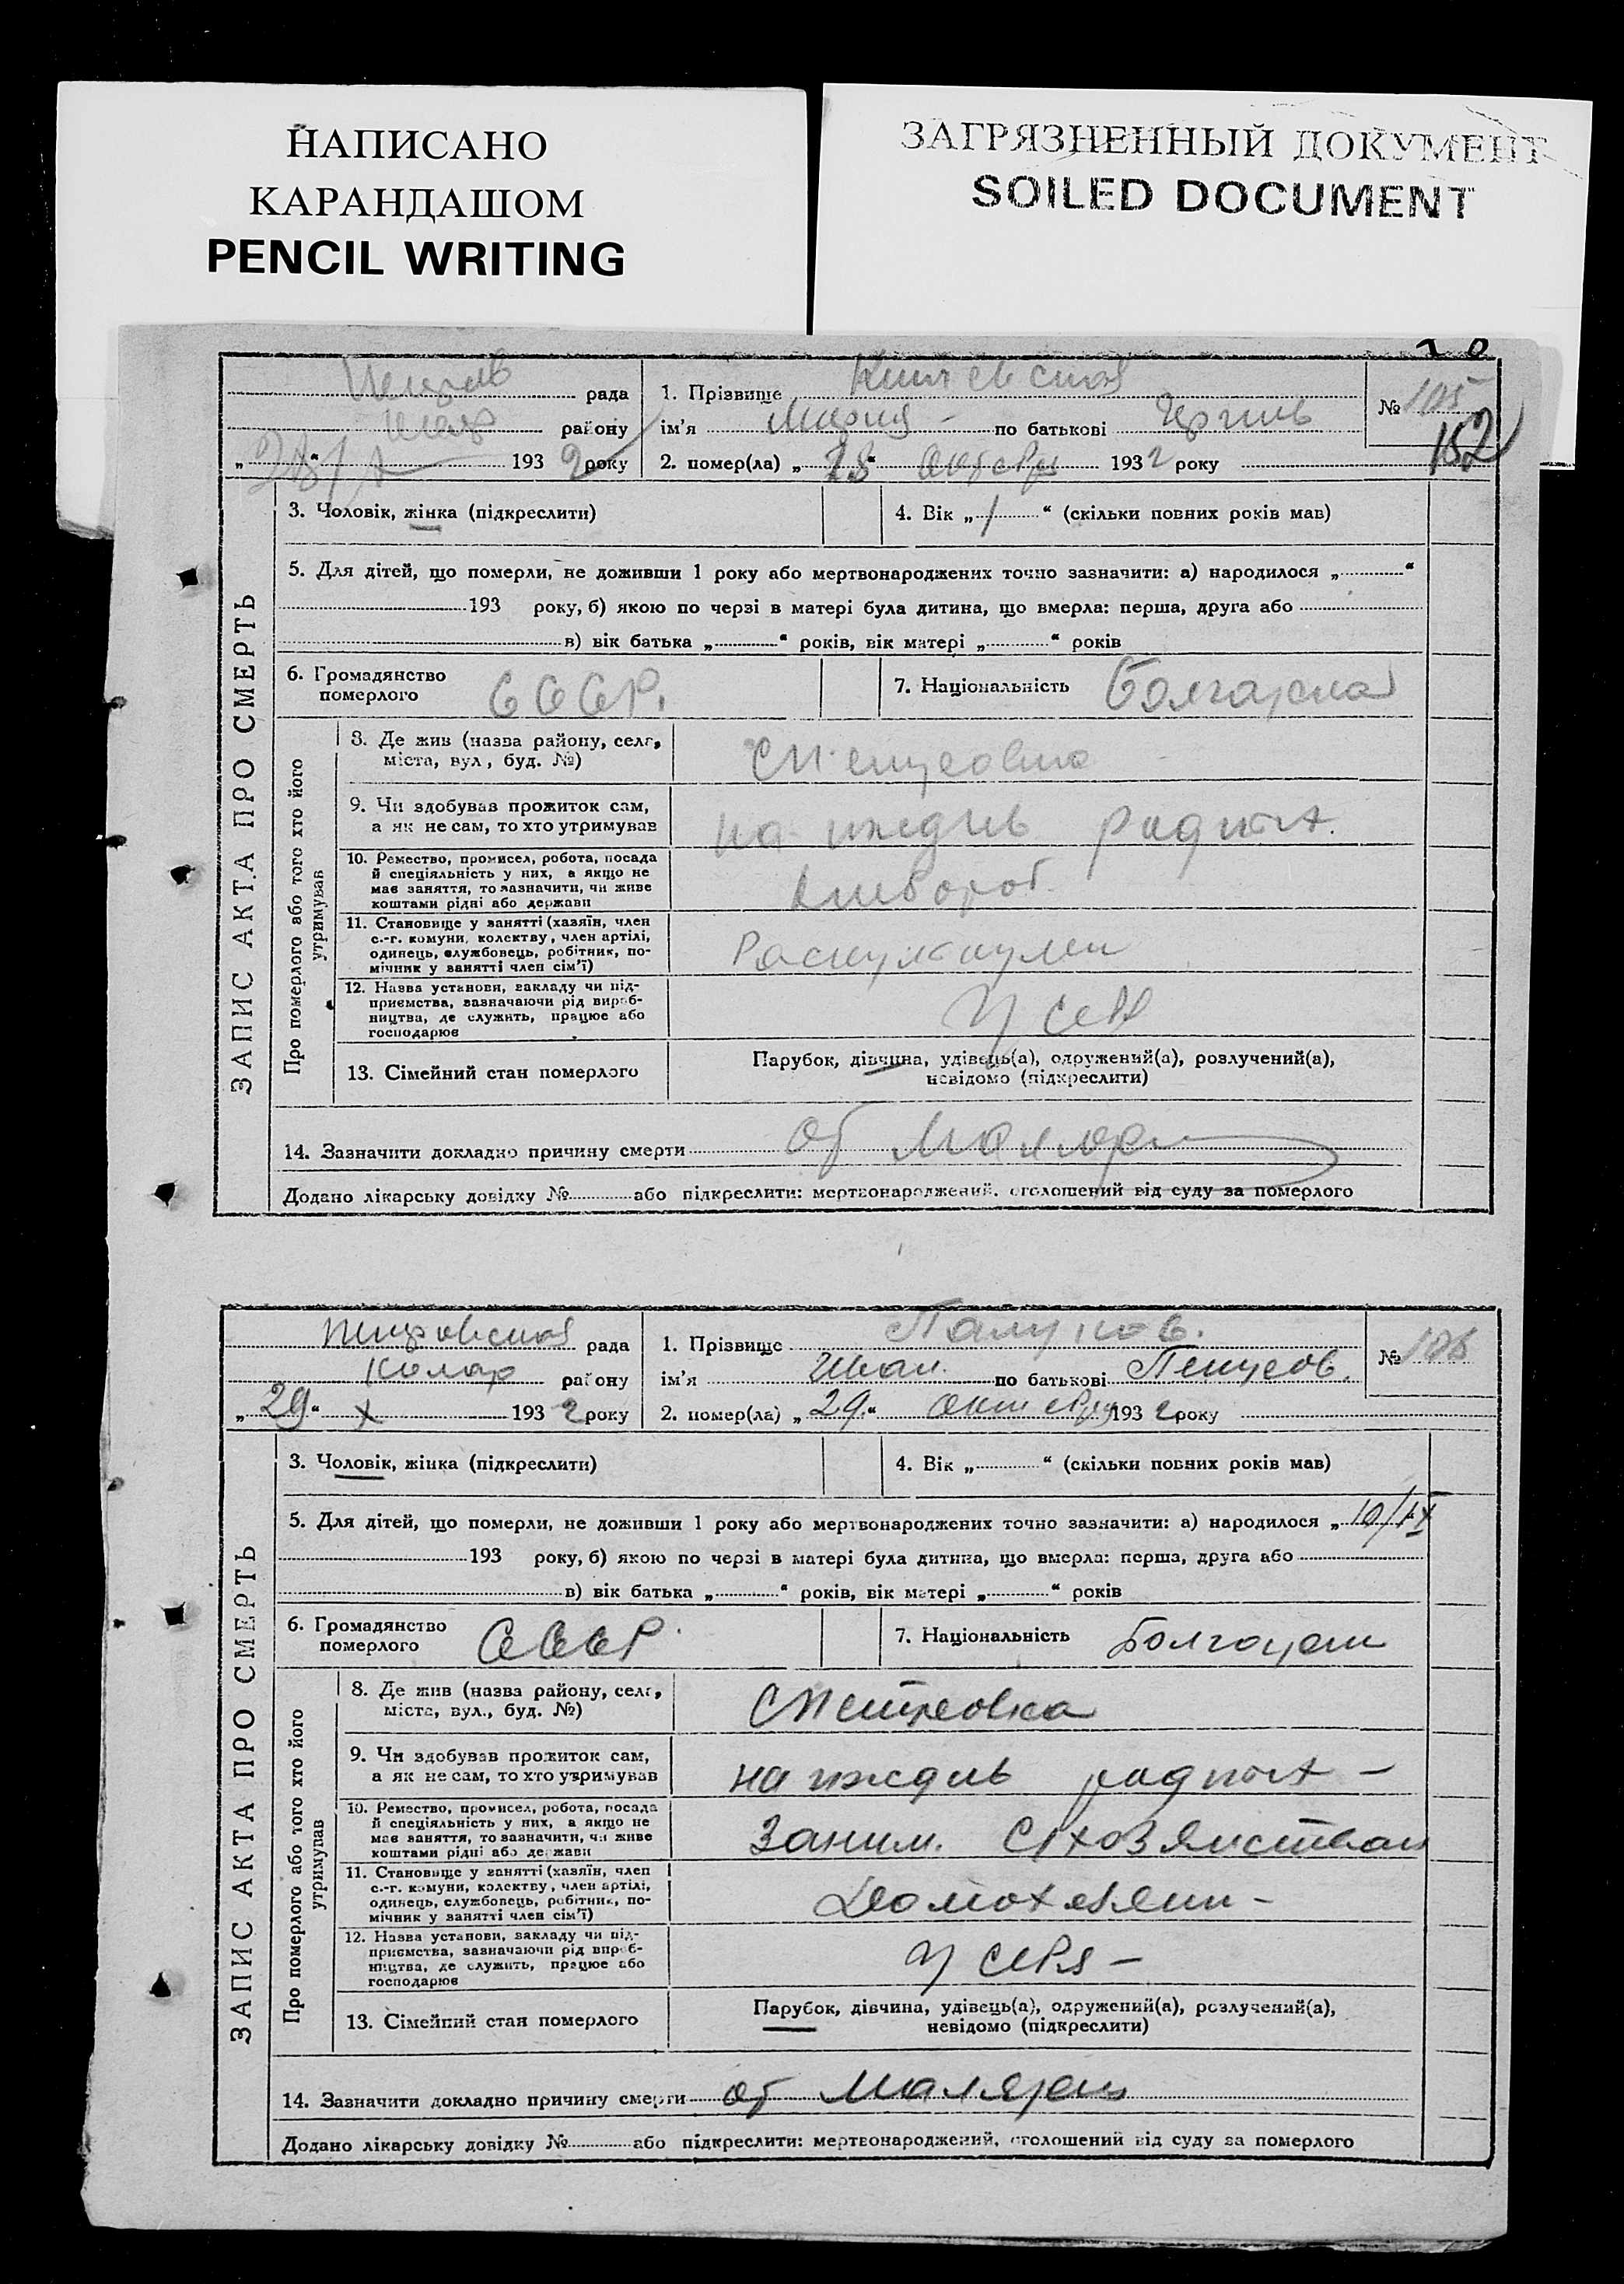 НАПИСАНО
КАРАНДАШОМ
PENCIL WRITING
ЗАГРЯЗНЕННЫЙ ДОКУМЕНТ
SOILED DOCUMENT
рада
району
193 2 року
1. Прізвище
ім'я Мария по батькові
2. помер(ла) „28“ Октября 1932 року
№ 105
152
ЗАПИС АКТА ПРО СМЕРТЬ
3. Чоловік, жінка (підкреслити)
4. Вік „1“ (скільки повних років мав)
5. Для дітей, що померли, не доживши 1 року або мертвонароджених точно зазначити: а) народилося „ “
193 року, б) якою по черзі в матері була дитина, що вмерла: перша, друга або
в) вік батька „ “ років, вік матері „ “ років
6. Громадянство
померлого СССР.
7. Національність Болгарка
Про померлого або того хто його
утримував
8. Де жив (назва району, села,
міста, вул., буд. №)
С Петровка
9. Чи здобував прожиток сам,
а як не сам, то хто утримував
на иждив родит.
10. Ремество, промисел, робота, посада
й спеціяльність у них, а якщо не
має заняття, то зазначити, чи живе
коштами рідні або держави
Хлебороб.
11. Становище у занятті (хазяїн, член
с.-г. комуни, колектву, член артілі,
одинець, службовець, робітник, по-
мічник у занятті член сім'ї)
12. Назва установи, закладу чи під-
приємства, зазначаючи рід вироб-
ництва, де служить, працює або
господарює
У себя
13. Сімейний стан померлого
Парубок, дівчина, удівець(а), одружений(а), розлучений(а),
невідомо (підкреслити)
14. Зазначити докладно причину смерти от Маляри
Додано лікарську довідку № або підкреслити: мертвонароджений, оголошений від суду за померлого
Петровская рада
Колар району
„29“ X 1932 року
1. Прізвище
ім'я Иван по батькові Петров.
2. помер(ла) „29.“ Октября 1932 року
№ 106
ЗАПИС АКТА ПРО СМЕРТЬ
3. Чоловік, жінка (підкреслити)
4. Вік „ “ (скільки повних років мав)
5. Для дітей, що померли, не доживши 1 року або мертвонароджених точно зазначити: а) народилося „10/IX
193 року, б) якою по черзі в матері була дитина, що вмерла: перша, друга або
в) вік батька „ “ років, вік матері „ “ років
6. Громадянство
померлого СССР.
7. Національність Болгарин
Про померлого або того хто його
утримував
8. Де жив (назва району, села,
міста, вул., буд. №)
С Петровка
9. Чи здобував прожиток сам,
а як не сам, то хто утримував
на иждив родит –
10. Ремество, промисел, робота, посада
й спеціяльність у них, а якщо не
має заняття, то зазначити, чи живе
коштами рідні або держави
Заним. С/хозяиством
11. Становище у занятті (хазяїн, член
с.-г. комуни, колектву, член артілі,
одинець, службовець, робітник, по-
мічник у занятті член сім'ї)
Домохазяин –
12. Назва установи, закладу чи під-
приємства, зазначаючи рід вироб-
ництва, де служить, працює або
господарює
У себя –
13. Сімейний стан померлого
Парубок, дівчина, удівець(а), одружений(а), розлучений(а),
невідомо (підкреслити)
14. Зазначити докладно причину смерти от Малярии
Додано лікарську довідку № або підкреслити: мертвонароджений, оголошений від суду за померлого